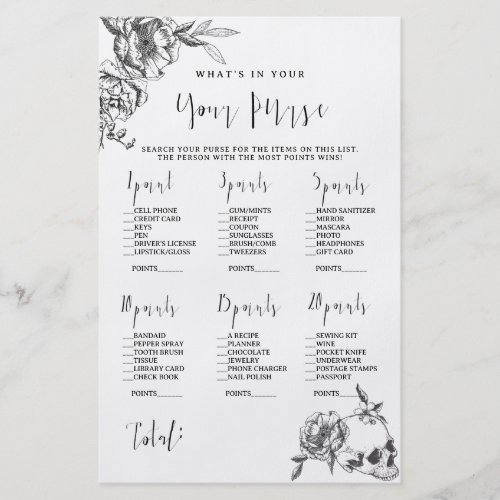 WHAT'S IN YOUR
Your Purse
SEARCH YOUR PURSE FOR THE ITEMS ON THIS LIST.
THE PERSON WITH THE MOST POINTS WINS!
1 point
__CELL PHONE
__CREDIT CARD
__KEYS
__PEN
__DRIVER'S LICENSE
__LIPSTICK/GLOSS
POINTS______
3 points
__GUM/MINTS
__RECEIPT
__COUPON
__SUNGLASSES
__BRUSH/COMB
__TWEEZERS
POINTS______
5 points
__HAND SANITIZER
__MIRROR
__MASCARA
__PHOTO
__HEADPHONES
__GIFT CARD
POINTS______
10 points
__BANDAID
__PEPPER SPRAY
__TOOTH BRUSH
__TISSUE
__LIBRARY CARD
__CHECK BOOK
POINTS______
15 points
__A RECIPE
__PLANNER
__CHOCOLATE
__JEWELRY
__PHONE CHARGER
__NAIL POLISH
POINTS______
20 points
__SEWING KIT
__WINE
__POCKET KNIFE
__UNDERWEAR
__POSTAGE STAMPS
__PASSPORT
POINTS______
Total: